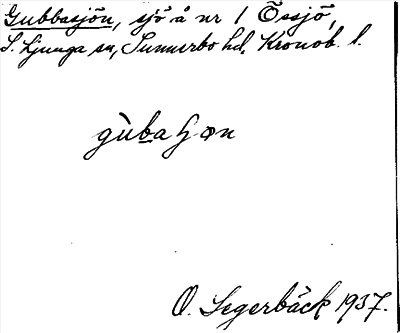 Gubbasjön, sjö å nr 1 Össjö,
S. Ljunga sn, Sunnerbo hd. Kronob. l.
O. Segerbäck 1937.